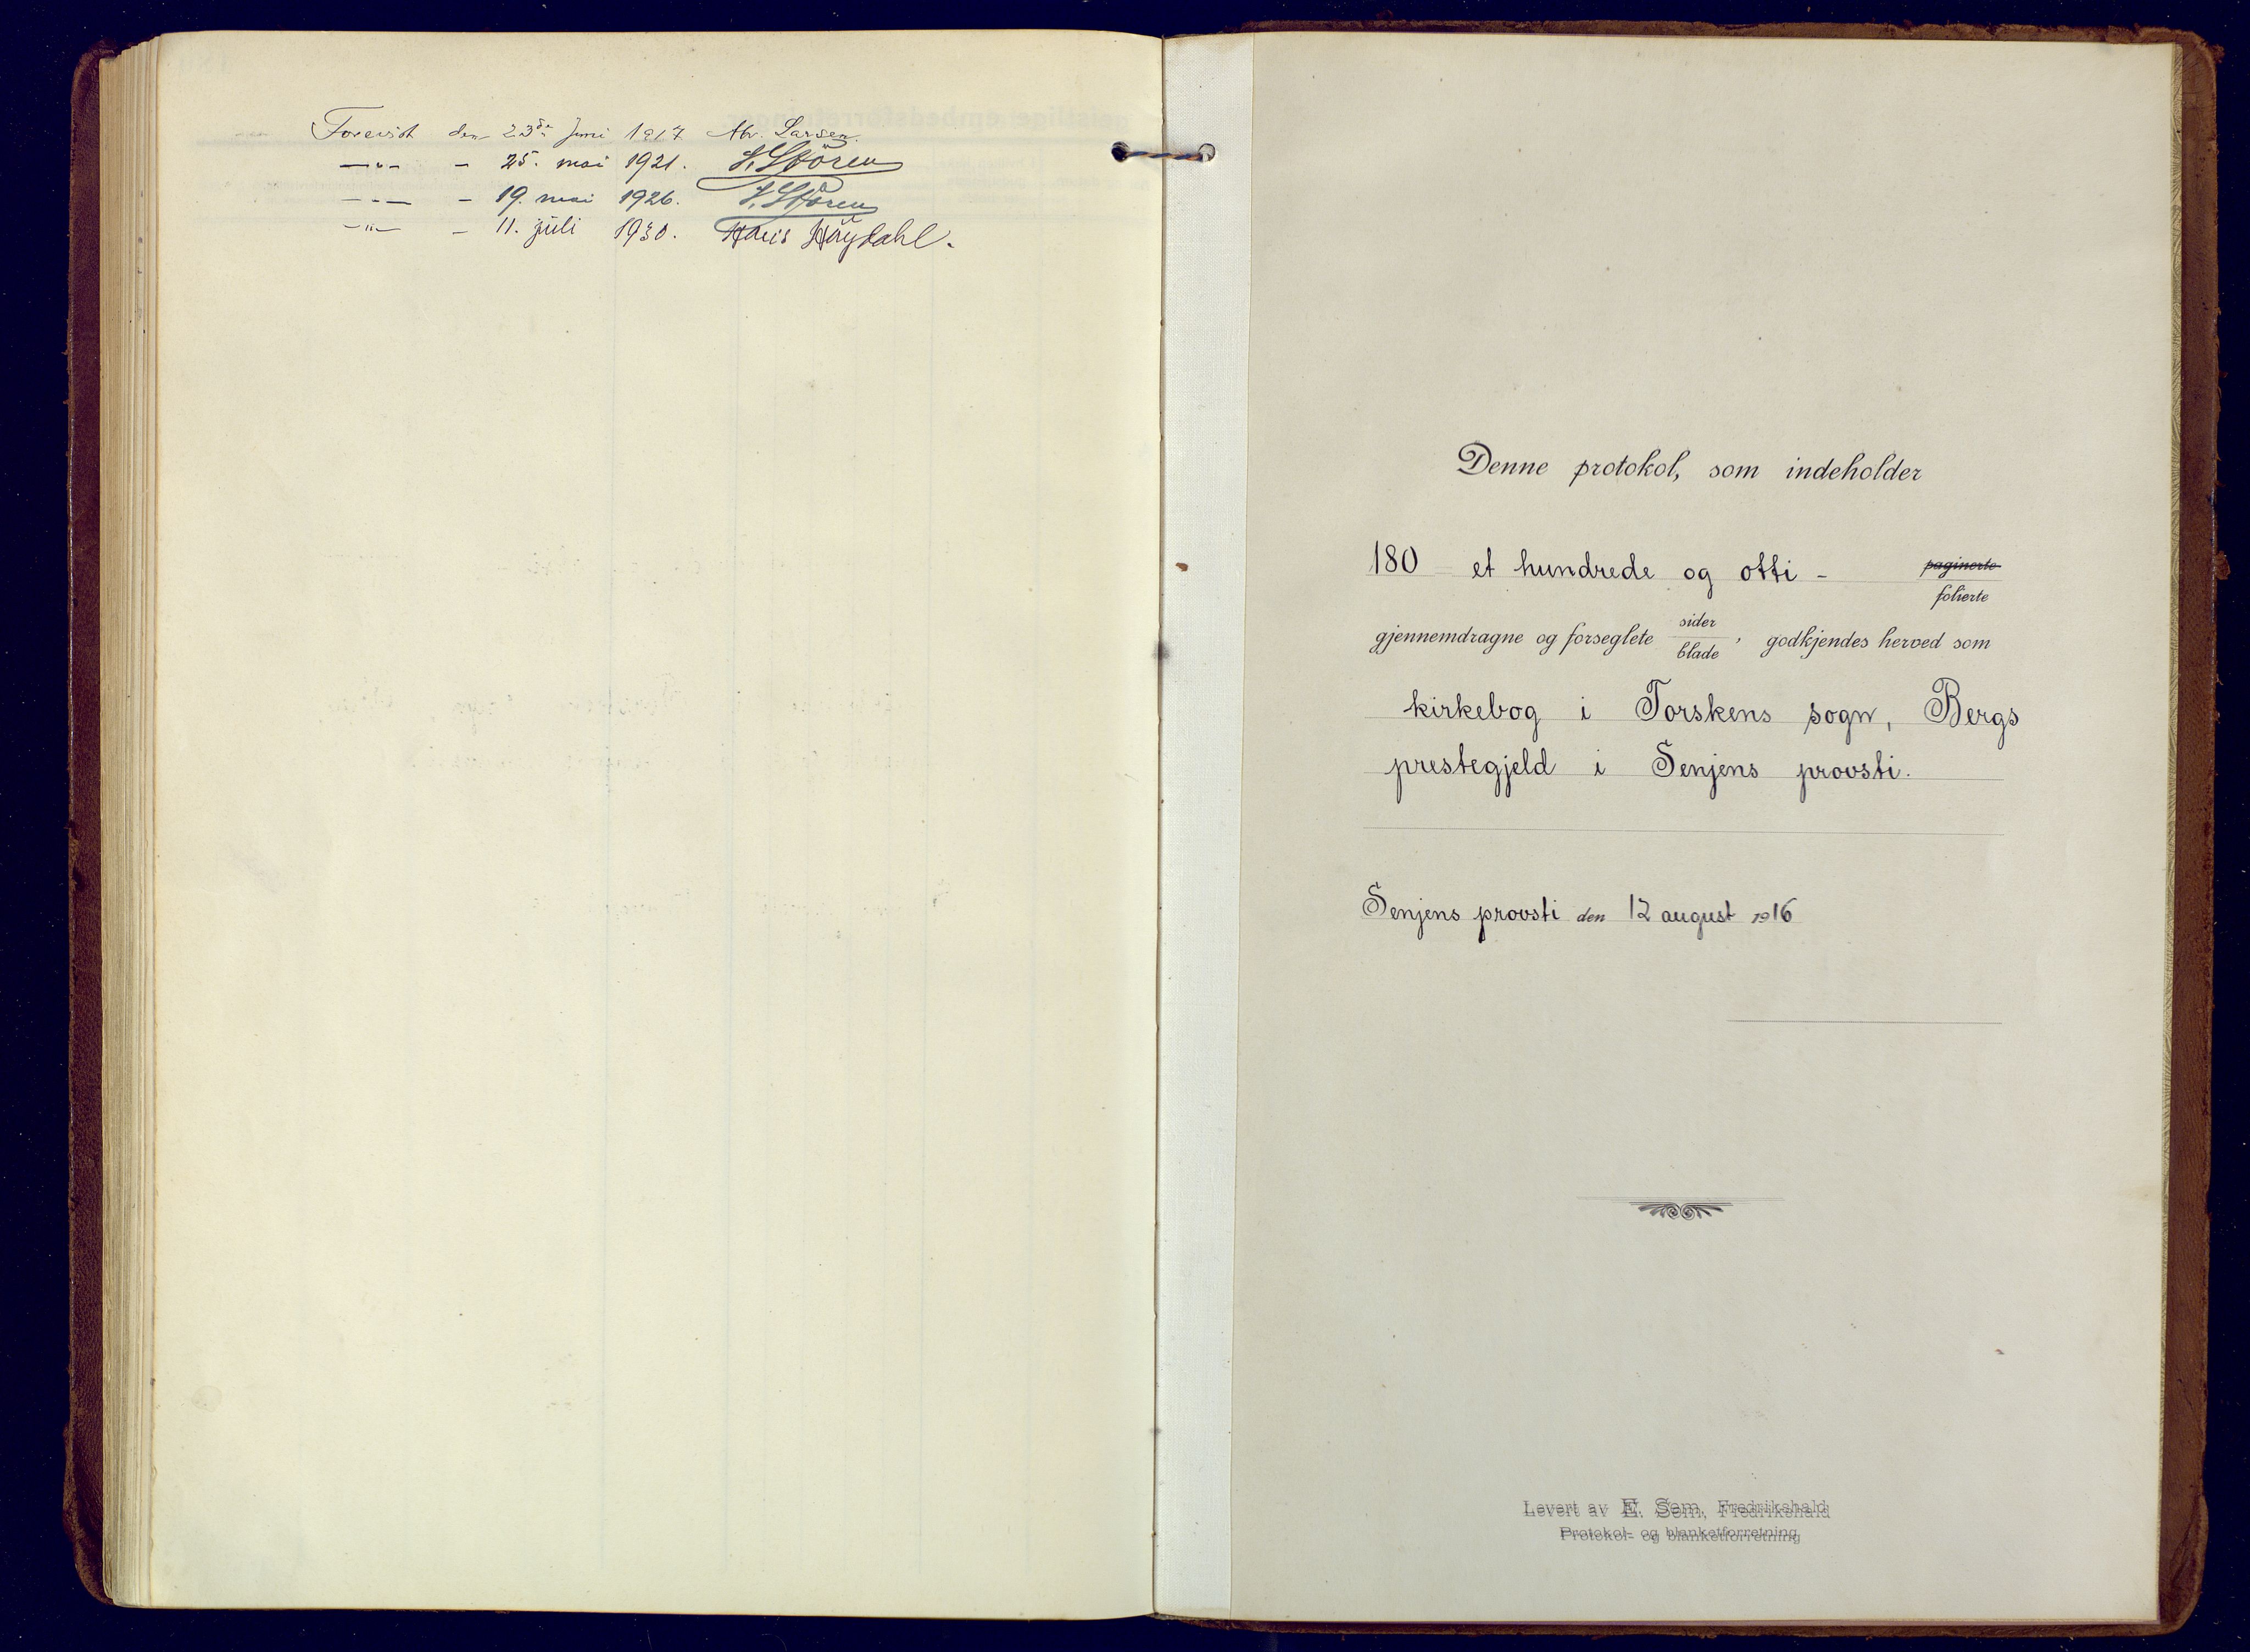 Forevist den 23de juni 1917 Ab. Larsen.
—"— – 25. mai 1921. J. Støren
—"— – 19. mai 1926. J. Støren
—"— – 11. juli 1930. Hans Høydahl.
Denne protokol, som indeholder
180 et hundrede og otti – paginerte
folierte
gjennemdragne og forseglete sider
blade, godkjendes herved som
kirkebog i Torskens sogn, Bergs
prestegjeld i Senjens provsti.
Senjens provsti den 12 august 1916
Levert av E. Sem, Fredrikshald
Protokol- og blanketforretning